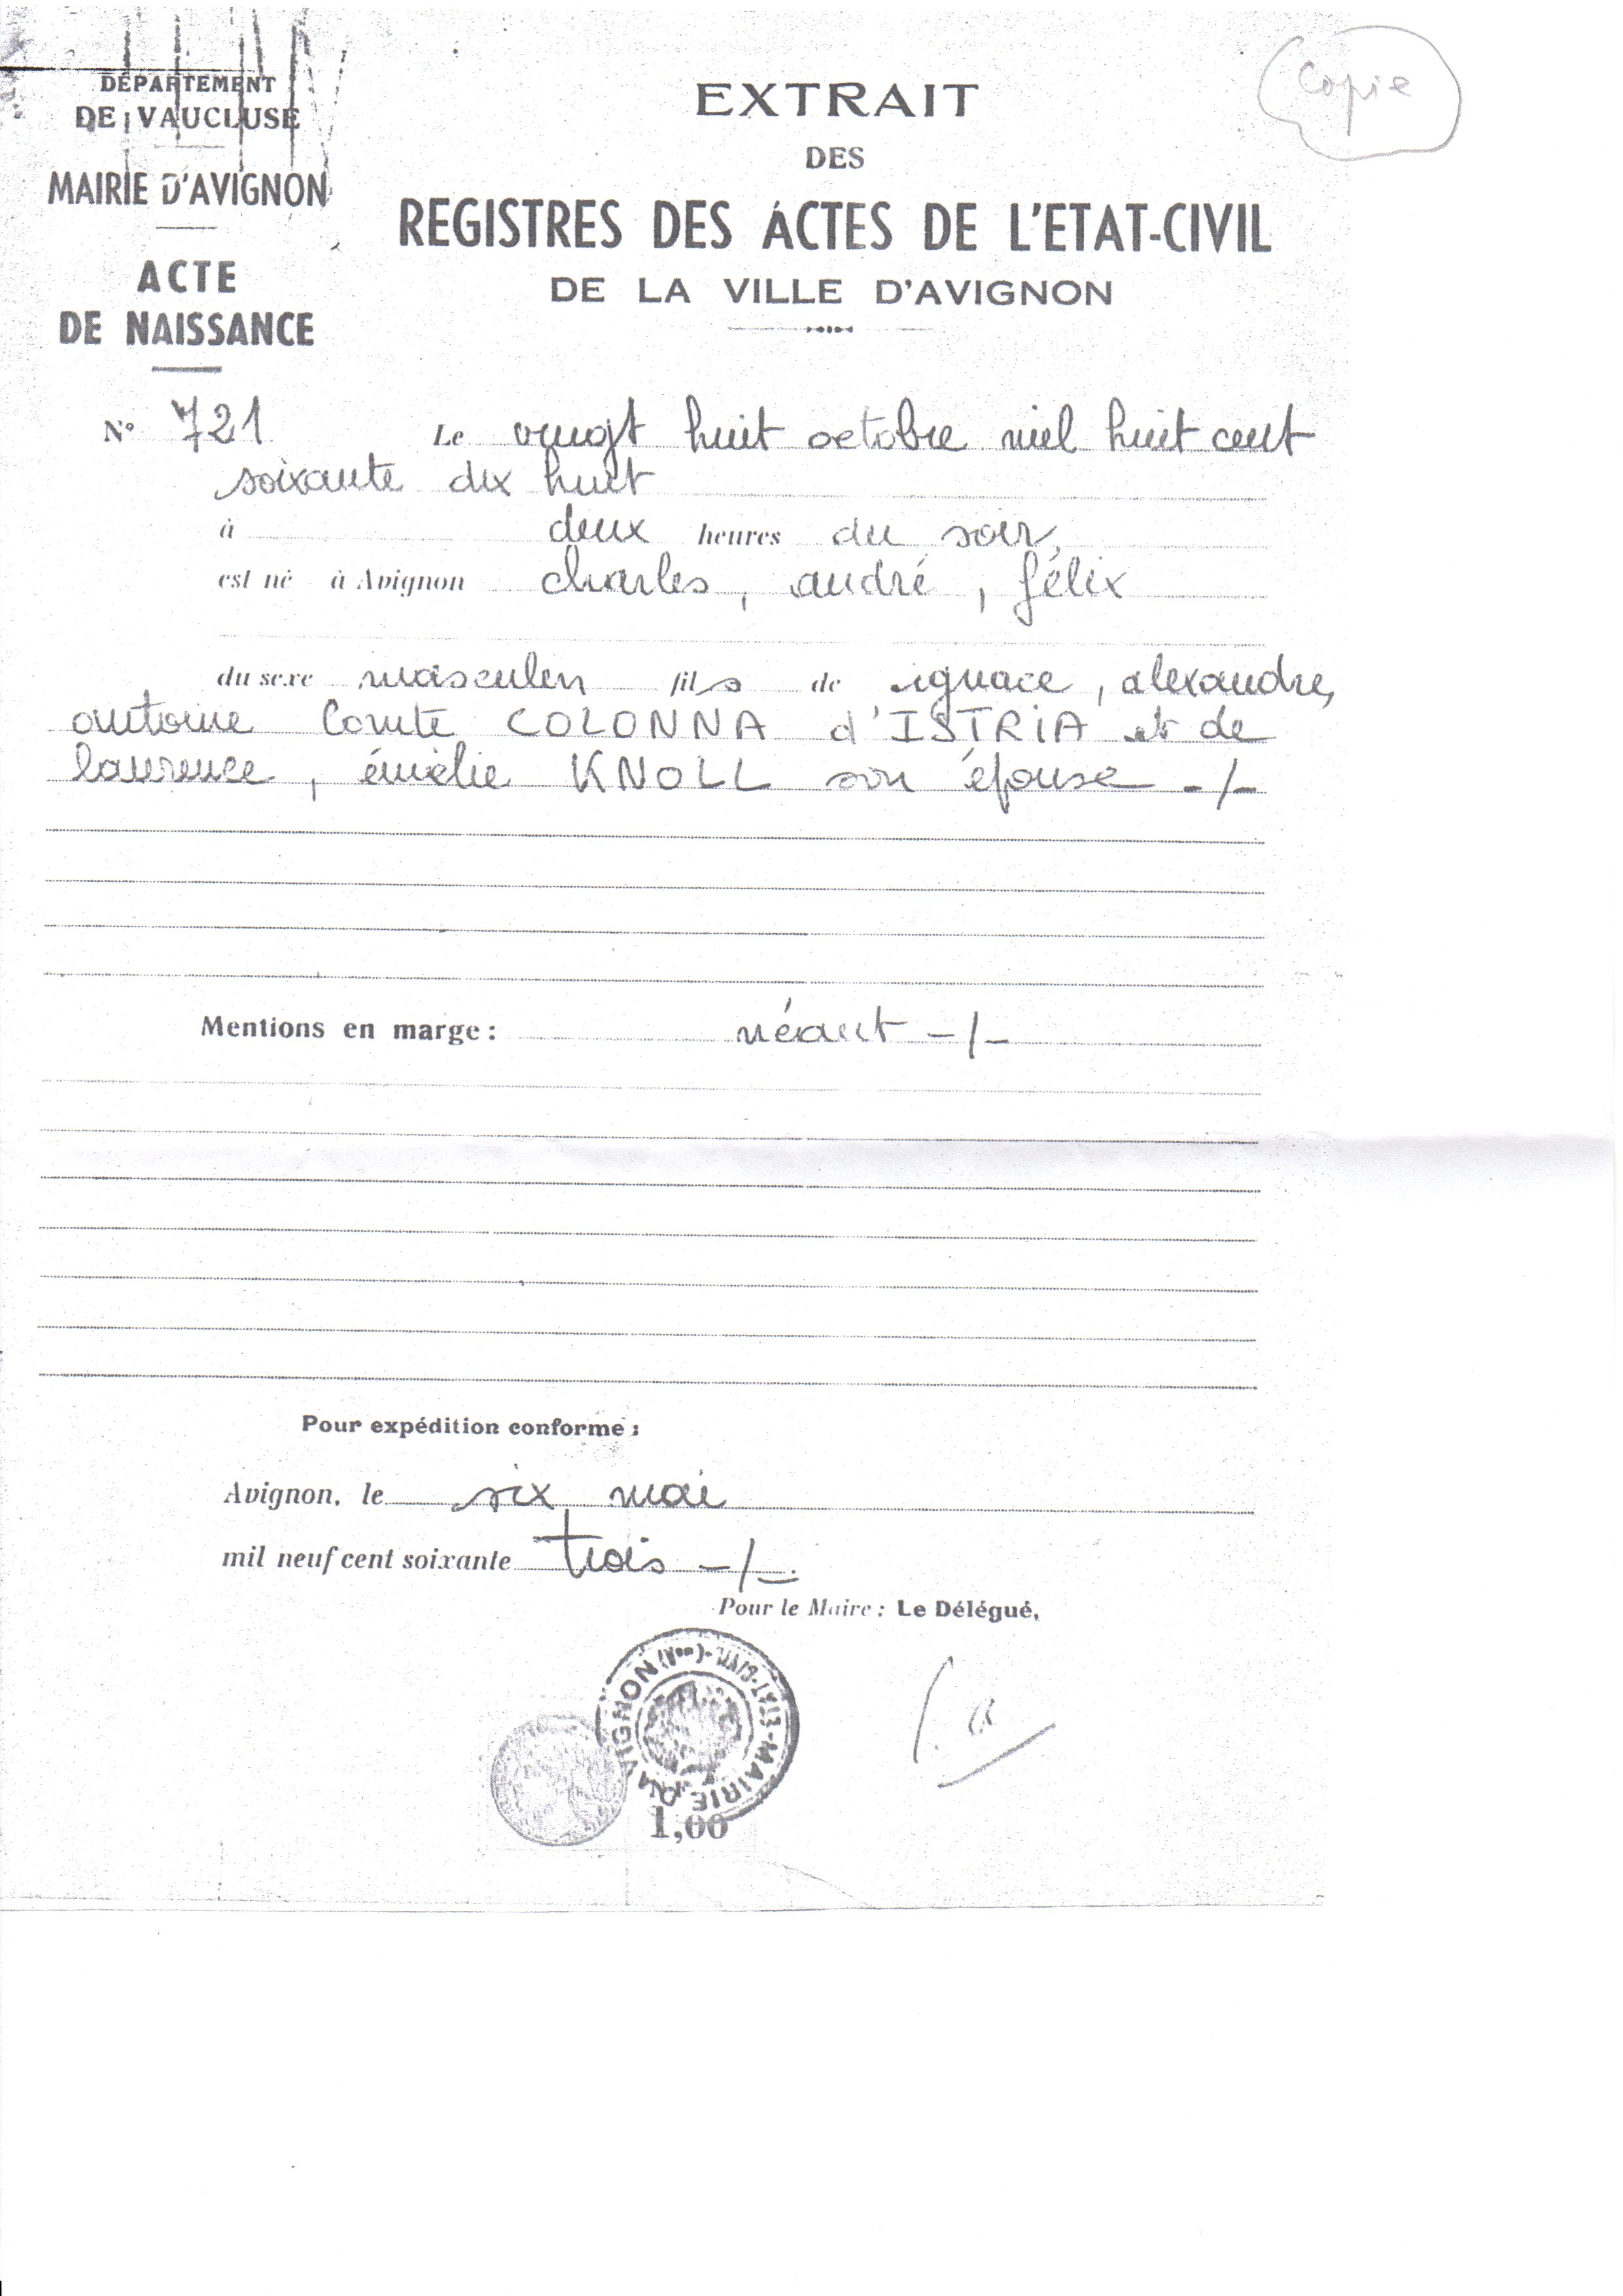 Copie
DÉPARTEMENT
DE VAUCLUSE
MAIRIE D'AVIGNON
ACTE
DE NAISSANCE
EXTRAIT
DES
REGISTRES DES ACTES DE L'ETAT-CIVIL
DE LA VILLE D'AVIGNON
N° 721 Le vingt huit octobre mil huit cent
soixante dix huit
à deux heures du soir,
est né à Avignon charles, andré, félix
du sexe masculin fils de ignace, alexandre,
antoine Comte COLONNA d'ISTRIA et de
laurence, émélie KNOLL son épouse -/-
Mentions en marge : néant -/-
Pour expédition conforme :
Avignon, le six mai
mil neuf cent soixante trois -/-.
Pour le Maire : Le Délégué,
MAIRIE D'AVIGNON (Vse)
1,00